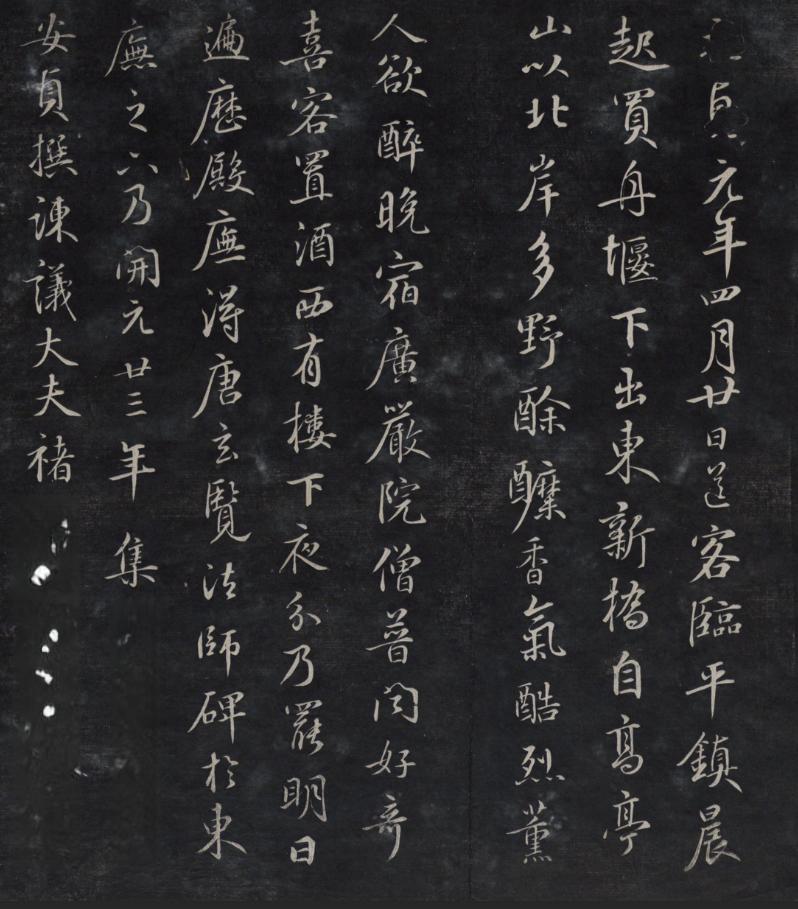 貞元年四月廿日送客臨平鎮晨
起買舟堰下出東新橋自高亭
山以北岸多野酴醿香氣酷烈薰
人欲醉晚宿廣嚴院僧普好奇
喜客置酒西有樓下夜分乃罷明日
遍歷殿廡得唐玄覽法師碑於東
廡之下乃開元廿三年集
安貞撰諫議大夫褚